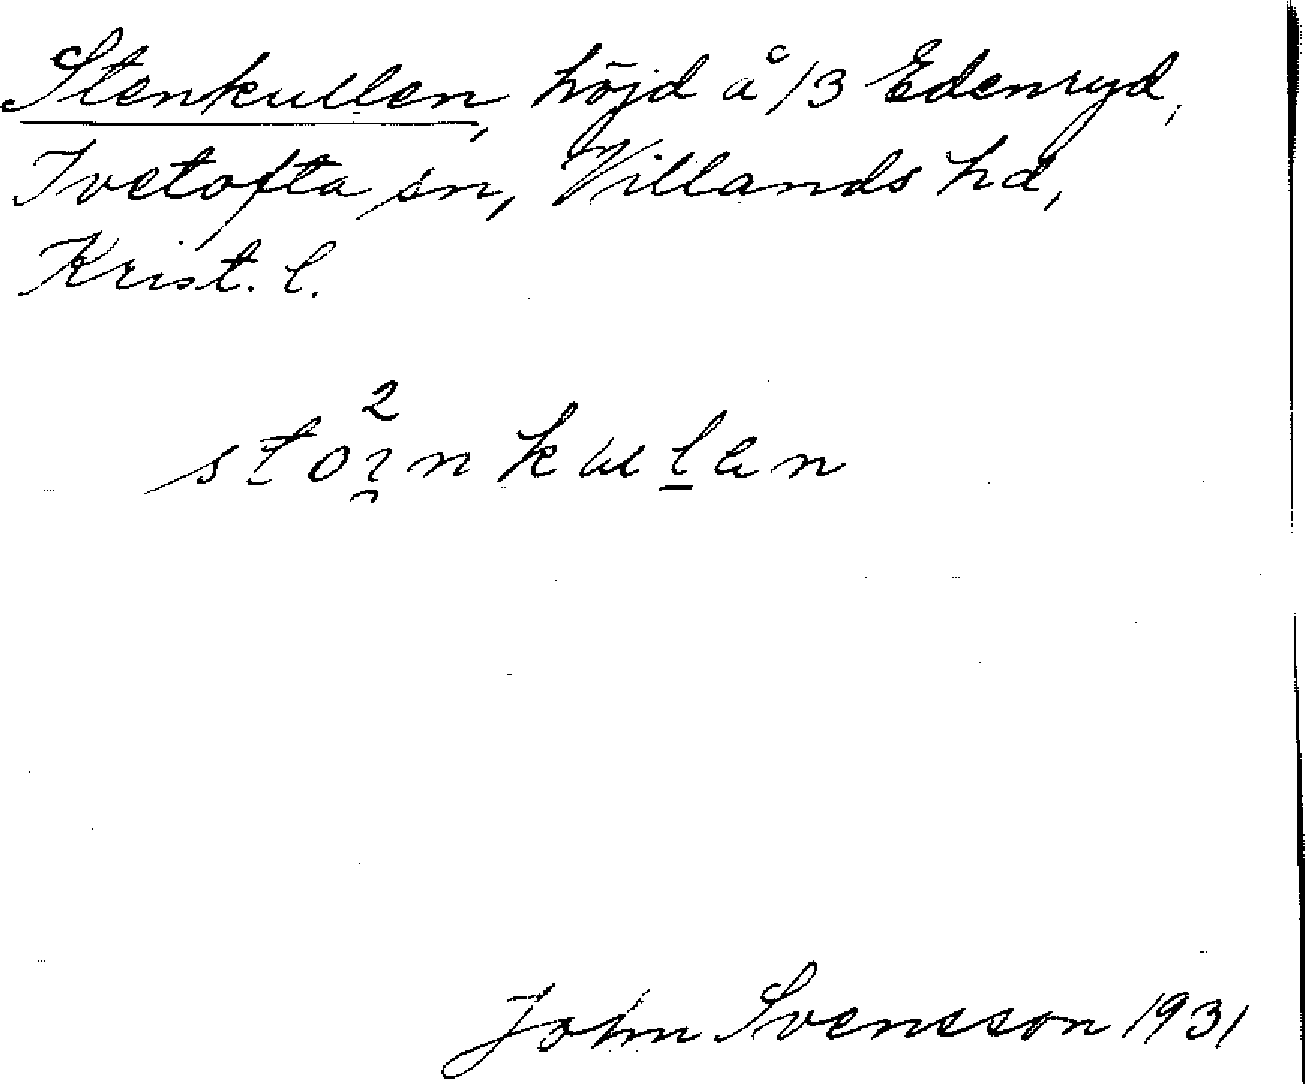 Stenkullen, höjd å /3 Edenryd,
Ivetofta sn, Villands hd,
Krist. l.
2
stoı̯nkulan
John Svensson 1931